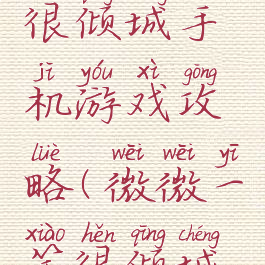 很倾城手
jī yóu xì gōng
机游戏攻
lüè wēi wēi yī
略(微微一
xiào hěn qīng chéng
笑很倾城